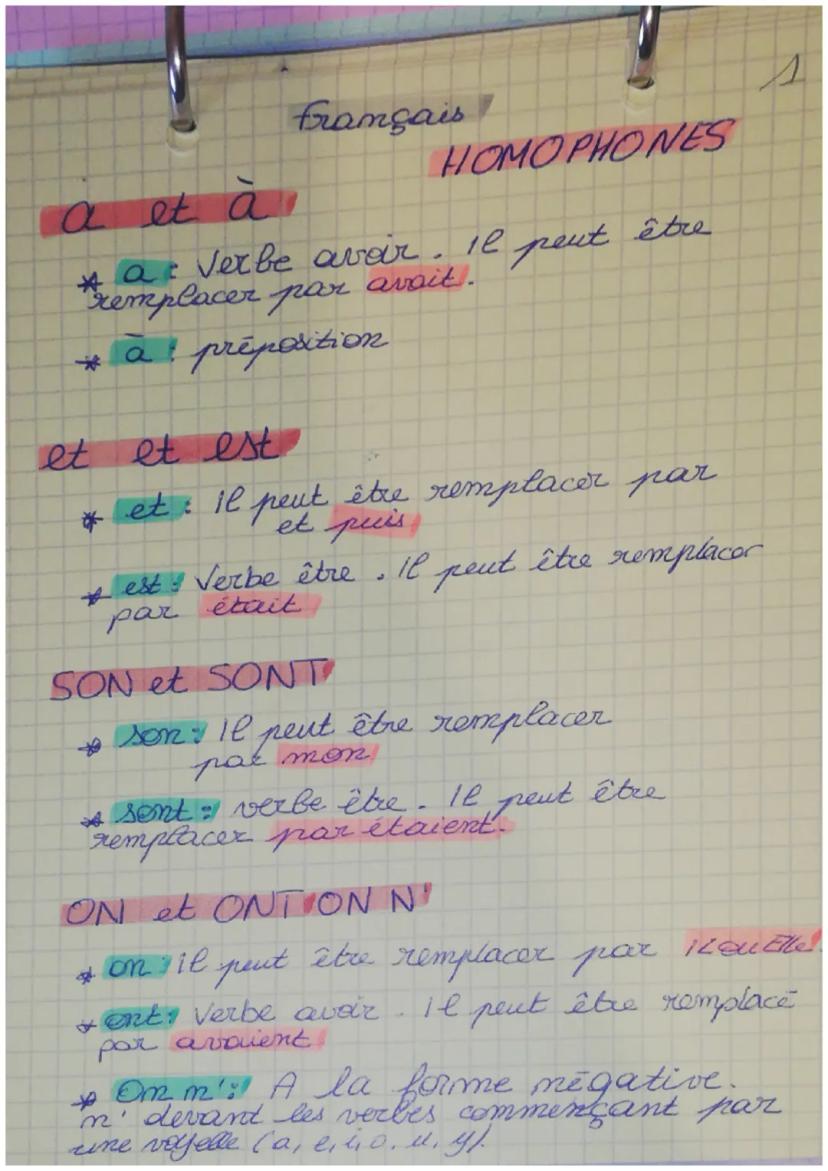 1
français
HOMOPHONES
a et à
* a : Verbe avoir. Il peut être
remplacer par avait.
* à : préposition
et et est
* et : il peut être remplacer par
et puis
* est : Verbe être. Il peut être remplacer
par était
SON et SONT
* son : Il peut être remplacer
par mon
* sont : verbe être. Il peut être
remplacer par étaient.
ON et ONT ON N'
* on : il peut être remplacer par IL ou Elle
* ont : Verbe avoir. Il peut être remplacé
par avaient
* On n' : A la forme négative.
n' devant les verbes commençant par
une voyelle (a, e, i, o, u, y).